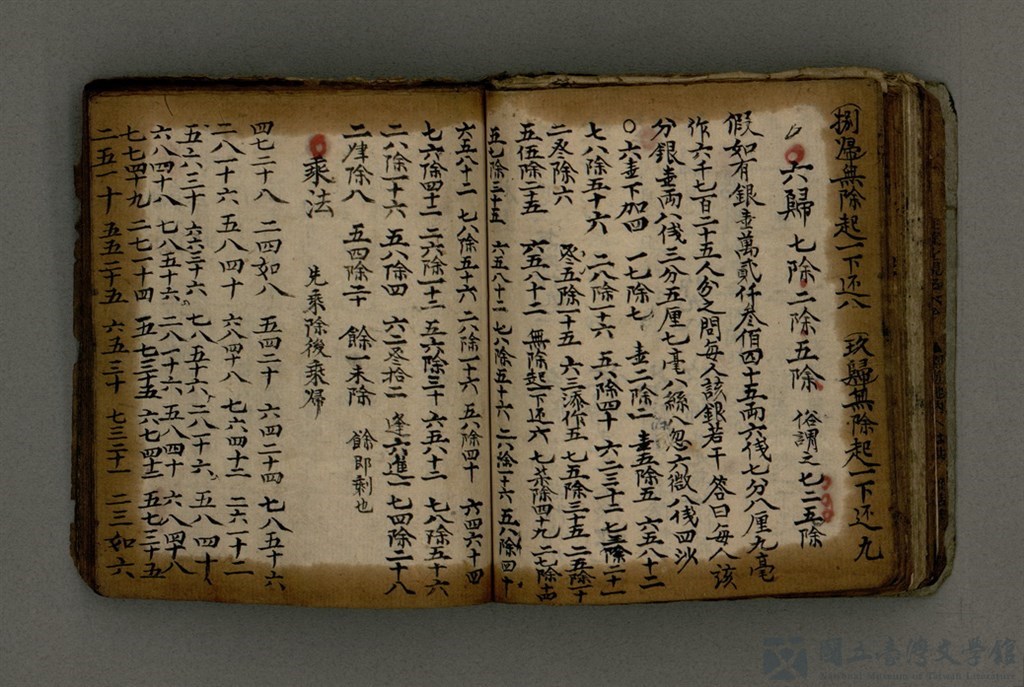 捌歸無除起一下还八 玖歸無除起一下还九
六歸 七除二除五除 俗謂之七二五除
假如有銀壹萬貳仟叁佰四十五両六伐七分八厘九毫
作六千七百二十五人分之問每人該銀若干 答曰每人該
分銀壹両八伐三分五厘七毫八絲八忽六微八伐四沙
○六壹下加四 一七除七 壹二除二 壹五除五 六五八十二
七八除五十六 二八除十六 五八除四十 六二三十二 七三除二十一
二叁除六 叁五除一十五 六三添作五 七五除三十五 二五除一十
五五除二十五 六五八十二 無除起一下还六 七柒除四十九 二七除十四
五七除三十五 六五八十二 七八除五十六 二八除一十六 五八除四十
六五八十二 七八除五十六 二八除一十六 五八除四十 六四六十四
七六除四十二 二六除一十二 五六除三十 六五八十二 七八除五十六
二八除一十六 五八除四 六二叁拾二 逢六進一 七四除二十八
二肆除八 五四除二十 餘一未除 餘即剩也
乘法 先乘除後乘歸
四七二十八 二四如八 五四二十 六四二十四 七八五十六
二八一十六 五八四十 六八四十八 七六四十二 二六一十二
五六三十 六六三十六 七八五十六 二八一十六 五八四十
六八四十八 七八五十六 二八一十六 五八四十 六八四十八
七七四十九 二七一十四 五七三十五 六七四十二 五七三十五
二五一十 五五二十五 六五三十 七三二十一 二三如六
國立臺灣文學館
National Museum of Taiwan Literature